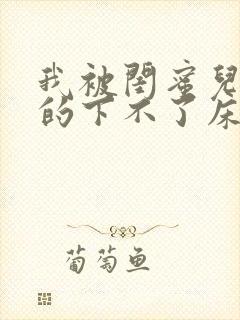 我被閨蜜兒
的下不了床
葡萄鱼